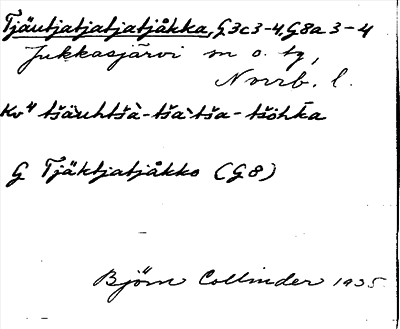 Tjäutjatjatjatjåkka, G3c3-4, G8a3-4
Jukkasjärvi sn o. tg,
Norrb. l.
Kv4 tšäuhtšà-tša`tša-tšohka
G Tjäktjatjåkko (G8)
Björn Collinder 1935